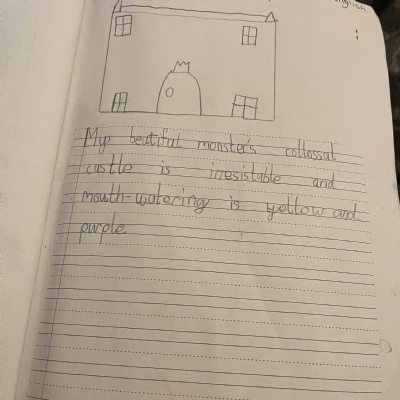 English.
My beatiful monster's collossal
castle is irresistable and
mouth-watering is yellow and
purple.